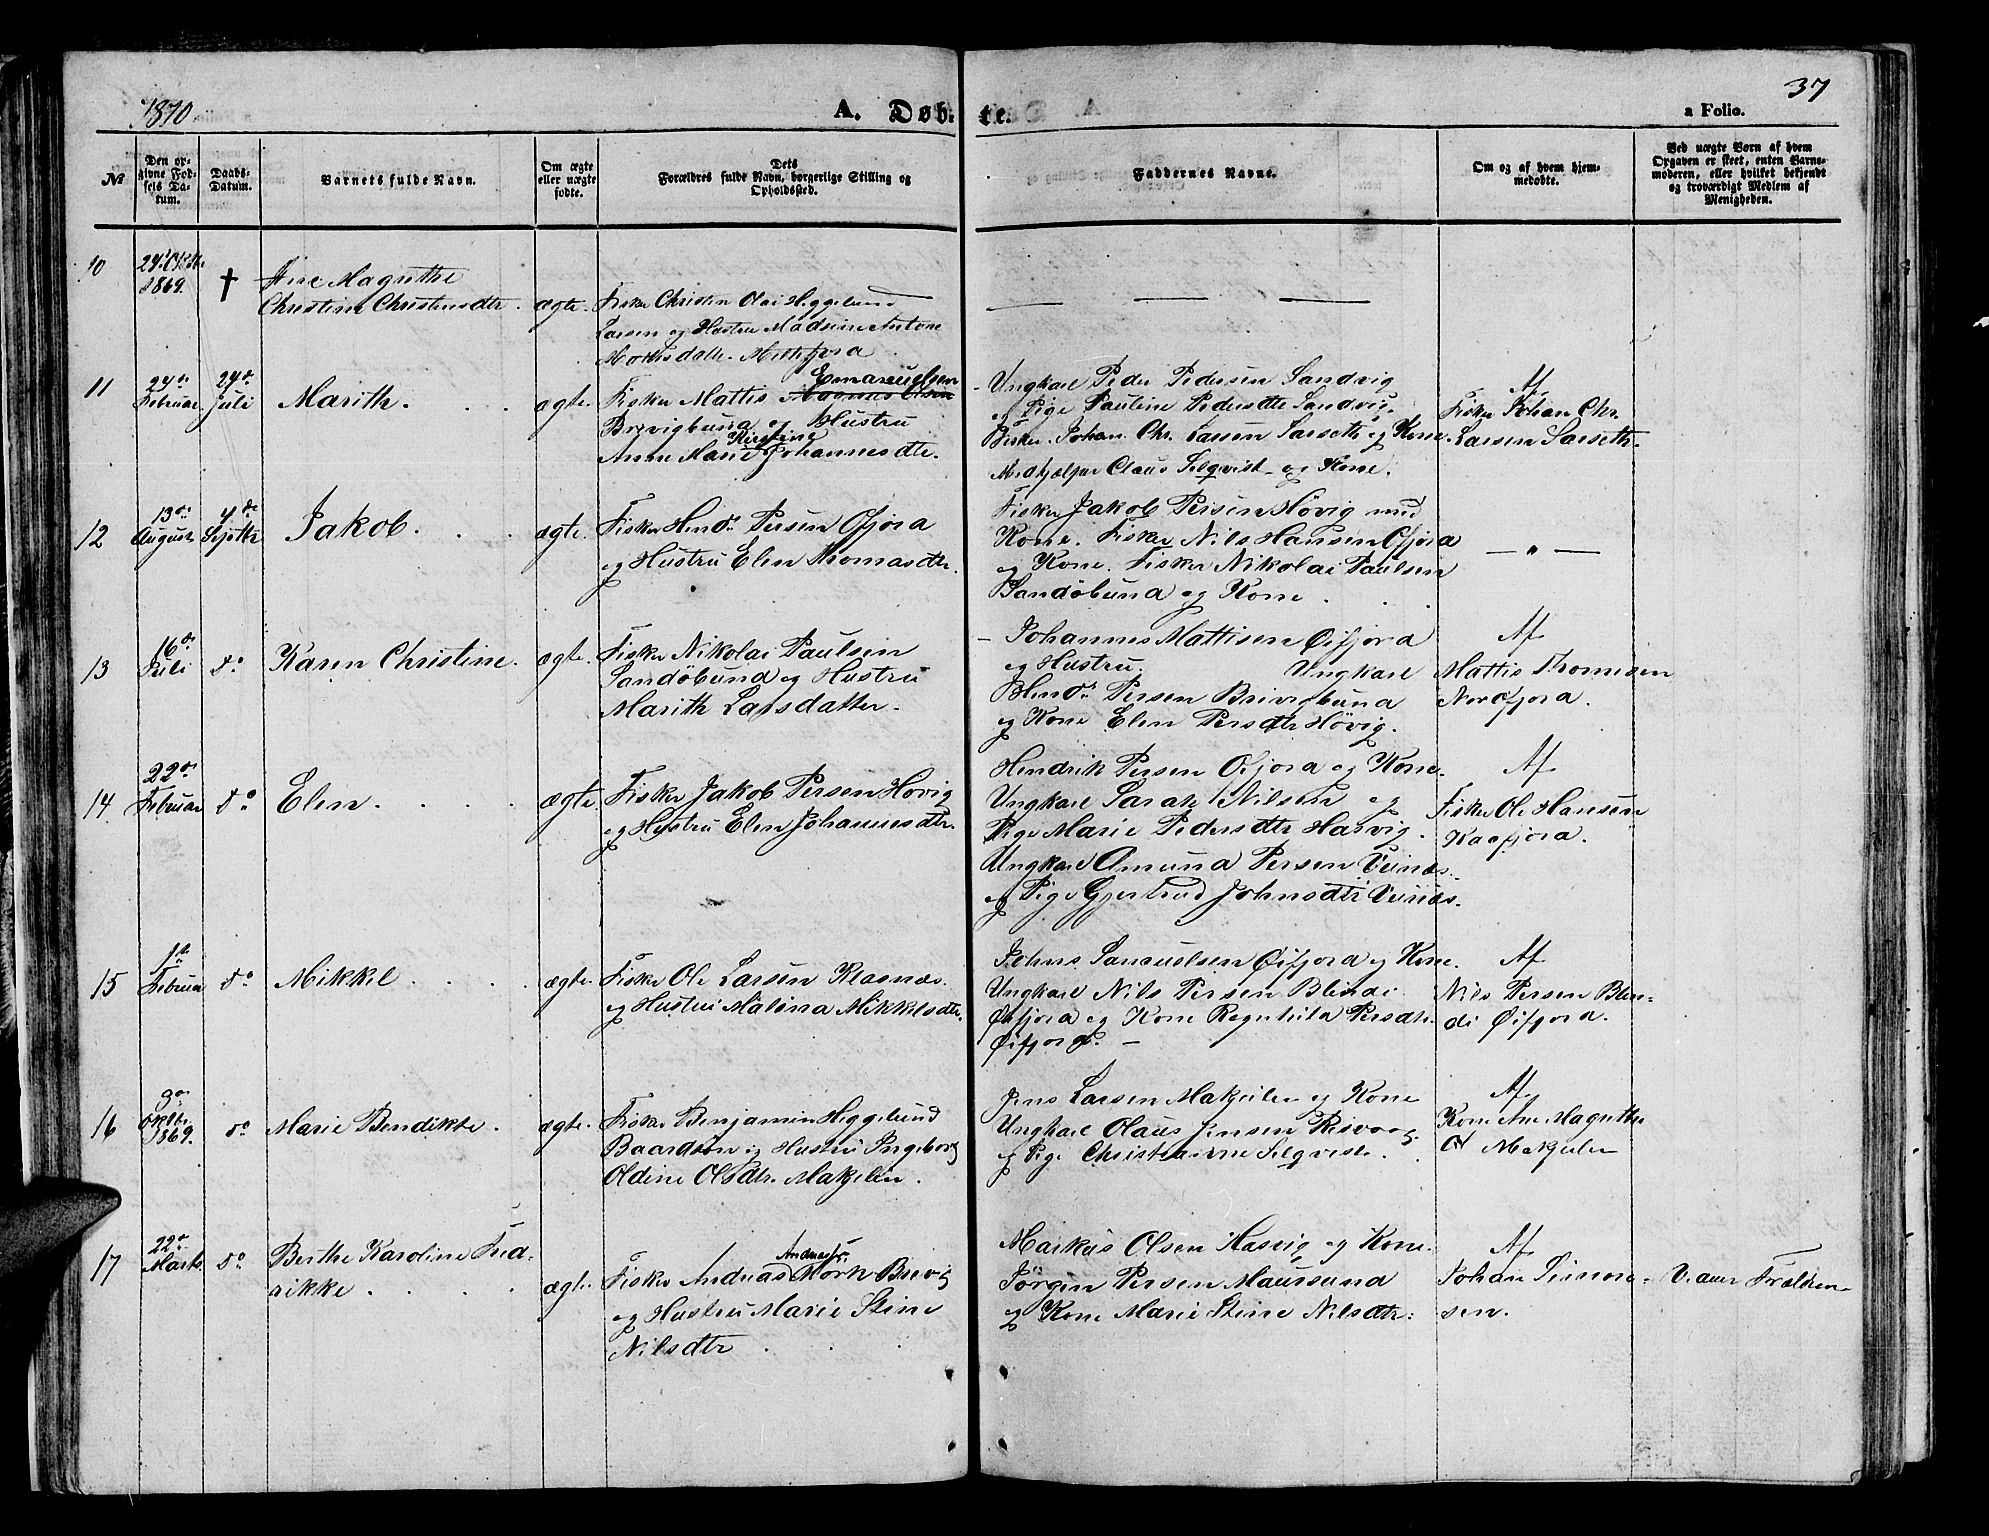 1870
A. Døb-
te.
37
a Folio.
№
Den op-
givne Fød-
sels Da-
tum.
Daabs-
Datum.
Barnets fulde Navn.
Om ægte
eller uægte
fødte.
Dets
Forældres fulde Navn, borgerlige Stilling og
Opholdssted.
Faddernes Navne.
Om og af hvem hjem-
medøbte.
Ved uægte Børn af hvem
Opgaven er skeet, enten Barne-
moderen, eller hvilket bekjendt
og troværdigt Medlem af
Menigheden.
10
1869.
†
Magrethe
Christine Christensdtr.
ægte.
Fisker Christen Olai Heggelund
Larsen og Hustru Madsine Antone
11
24de
Februar
24de
Juli
Marith.
ægte.
Emanuelsen
Fisker Mattis
Brevigbund og Hustru
Kirstine
Anne Marie Johannesdtr.
Ungkarl Peder Pedersen Sandvig
og Pige Pauline Pedersdtr Sandvig.
Fisker Johan Chr. Larsen Sarseth og Kone.
Medhjælper Claus Selqvist og Kone.
Af
Fisker Johan Chr.
Larsen Sarseth.
12
13de
August
4de
Septbr
Jakob.
ægte.
Fisker Hendk Persen Ofjord
og Hustru Elen Thomasdtr.
Fisker Jakob Persen Hövig med
Kone. Fisker Nils Hansen Ofjord
og Kone. Fisker Nikolai Paulsen
Sandöbund og Kone.
— " —
13
16de
Juli
do
Karen Christine.
ægte.
Fisker Nikolai Paulsen
Sandöbund og Hustru
Marith Larsdatter.
Johannes Mattisen Öifjord
og Hustru. Ungkarl
Hendk Persen Brevigbund
og Kone Elen Persdtr Hövig.
Af
Mattis Thomesen
Nordfjord.
14
22de
Februar
do
Elen.
ægte
Fisker Jakob Persen Hövig
og Hustru Elen Johannesdtr.
Hendrik Persen Ofjord og Kone.
Ungkarl Nilsen og
Pige Marie Pedersdtr Hasvig.
Ungkarl Amund Persen Veines.
og Pige Gjertrud Johnsdtr Veines.
Af
Fisker Ole Hansen
Kaafjord.
15
1te
Februar
do
Mikkel
ægte.
Fisker Ole Larsen Klasnæs.
og Hustru Malena Mikkelsdtr.
Johns Samuelsen Öifjord og Kone.
Ungkarl Nils Persen Blinde
Öifjord og Kone Ragnhild Persdtr.
Öifjord. —
Af
Nils Persen Blin-
di Öifjord.
16
9de
Oktbr.
1869.
do
Marie Bendikte.
ægte.
Fisker Benjamin Heggelund
Baardsön og Hustru Ingeborg
Oldine Olsdtr. Makjeilen.
Jens Larsen Makjeilen og Kone
Ungkarl Olaus Jensen Risvaag.
og Pige Christianne Selqvist.
Af
Kone Ane Magrethe
Makjeilen
17
22de
Marts.
do
Berthe Karoline Fred-
rikke.
ægte.
Andreass.
Fisker Andreas Mörk Brevig
og Hustru Marie Stine
Nilsdtr
Markus Olsen Hasvig og Kone.
Jörgen Persen Maursund
og Kone Marie Stine Nilsdtr.
Af
Johan Simon-
sen.